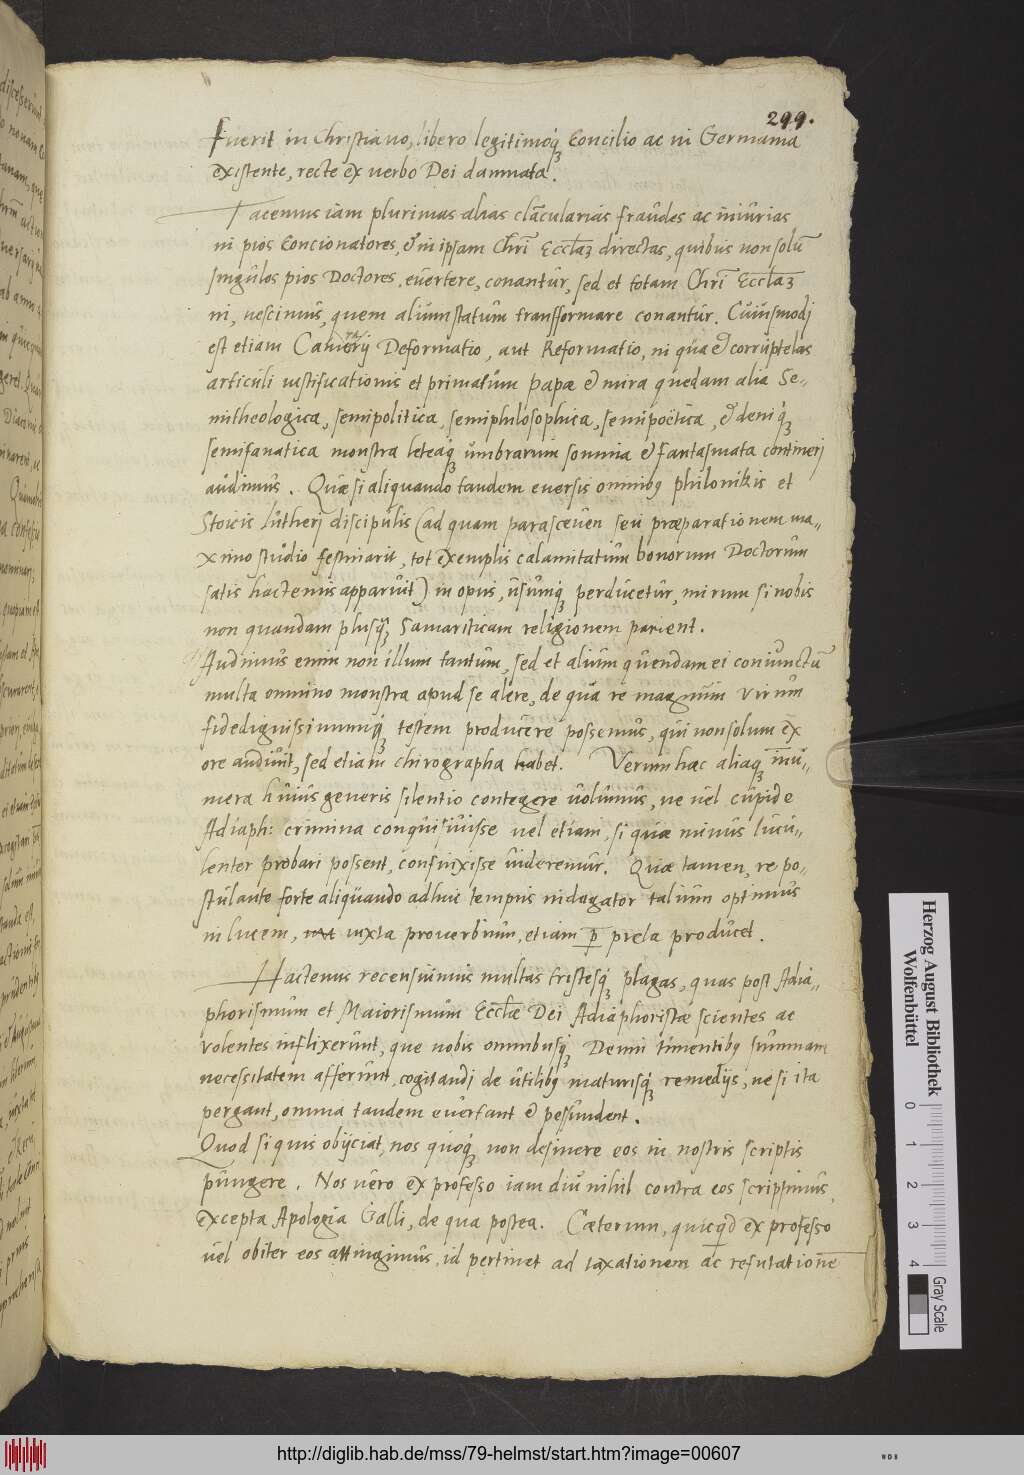 299.
fuerit in Christiano, libero legitimoq́ꝫ Concilio ac in Germania
existente, recte ex uerbo Dei damnata.
Tacemus iam plurimas alias clãcularias fraudes ac iniurias
in pios Concionatores, & in ipsam Chrĩ Eccłaꝫ directas, quibus non solũ
singulos pios Doctores euertere, conantur, sed et totam Chrĩ Eccłaꝫ
in, nescimus, quem alium statum transformare conantur. Cuiusmodj
est etiam Camerarij Deformatio, aut Reformatio, in qua & corruptelas
articuli iustificationis et primatum papæ & mira quedam alia Se-
mitheologica, semipolitica, semiphilosophica, semipoëtica, & deniq́ꝫ
semifanatica monstra leteaq́ꝫ umbrarum somnia & fantasmata contineri
audimus. Quæ si aliquando tandem euersis omnibꝰ philonikis et
Stoicis Lutherj discipulis (ad quam parasceuen seu præparationem ma-
ximo studio festinarit, tot exemplis calamitatum bonorum Doctorum
satis hactenus apparuit) in opus, usumq́ꝫ perducetur, mirum si nobis
non quandam plusq̃ꝫ Samariticam religionem parient.
Audimus enim non illum tantum, sed et alium quendam ei coniunctũ
multa omnino monstra apud se alere, de qua re magnum uirum
fidedignissimumq́ꝫ testem producere possemus, qui non solum ex
ore audiuit, sed etiam chirographa habet. Verum hæc aliaq́ꝫ innu-
mera huius generis silentio contegere uolumus, ne uel cupide
Adiaph: crimina conquisiuisse uel etiam, si quæ minus lucu-
lenter probari possent, confinxisse uideremur. Quæ tamen, re po-
stulante forte aliquando adhuc tempus indagator talium optimus
in lucem, iuxta prouerbium, etiam ꝑ prela producet.
Hactenus recensuimus multas tristesq́ꝫ plagas, quas post Adia-
phorismum et Maiorismum Eccłæ Dei Adiaphoristæ scientes ac
uolentes inflixerunt, que nobis omnibusq́ꝫ Deum timentibꝰ summam
necessitatem afferunt, cogitandj de utilibꝰ maturisq́ꝫ remedijs, ne si ita
pergant, omnia tandem euertant & pessundent.
Quod si quis obijciat, nos quoq́ꝫ non desinere eos in nostris scriptis
pungere. Nos uero ex professo iam diu nihil contra eos scripsimus,
excepta Apologia Galli, de qua postea. Cæterum, quicqd ex professo
uel obiter eos attingimus, id pertinet ad taxationem ac refutationẽ
Herzog August Bibliothek
Wolfenbüttel
0 1 2 3 4
Gray Scale
http://diglib.hab.de/mss/79-helmst/start.htm?image=00607